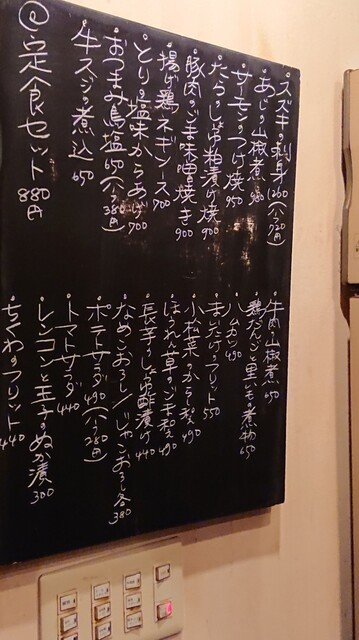 スズキの刺身 1260(ハーフ720円)
あじの山椒煮 980
サーモンのつけ焼 950
たらのしょうゆ粕漬け焼 900
豚肉のごま味噌焼き 900
揚げ鶏ネギソース 700
とりの塩味からあげ 700
おつまみ鳥塩 650(ハーフ380円)
牛スジの煮込 650
@定食セット 880円
牛肉の山椒煮 650
鶏だんごと里いもの煮物 650
ハムカツ 490
まいたけのフリット 550
小松菜のからし和え 490
ほうれん草のごま和え 490
長芋のしょうゆ酢漬け 440
なめこおろし/じゃこおろし各380
ポテトサラダ 490(ハーフ280円)
トマトサラダ 440
レンコンと玉子のぬか漬 300
ちくわのフリット 440